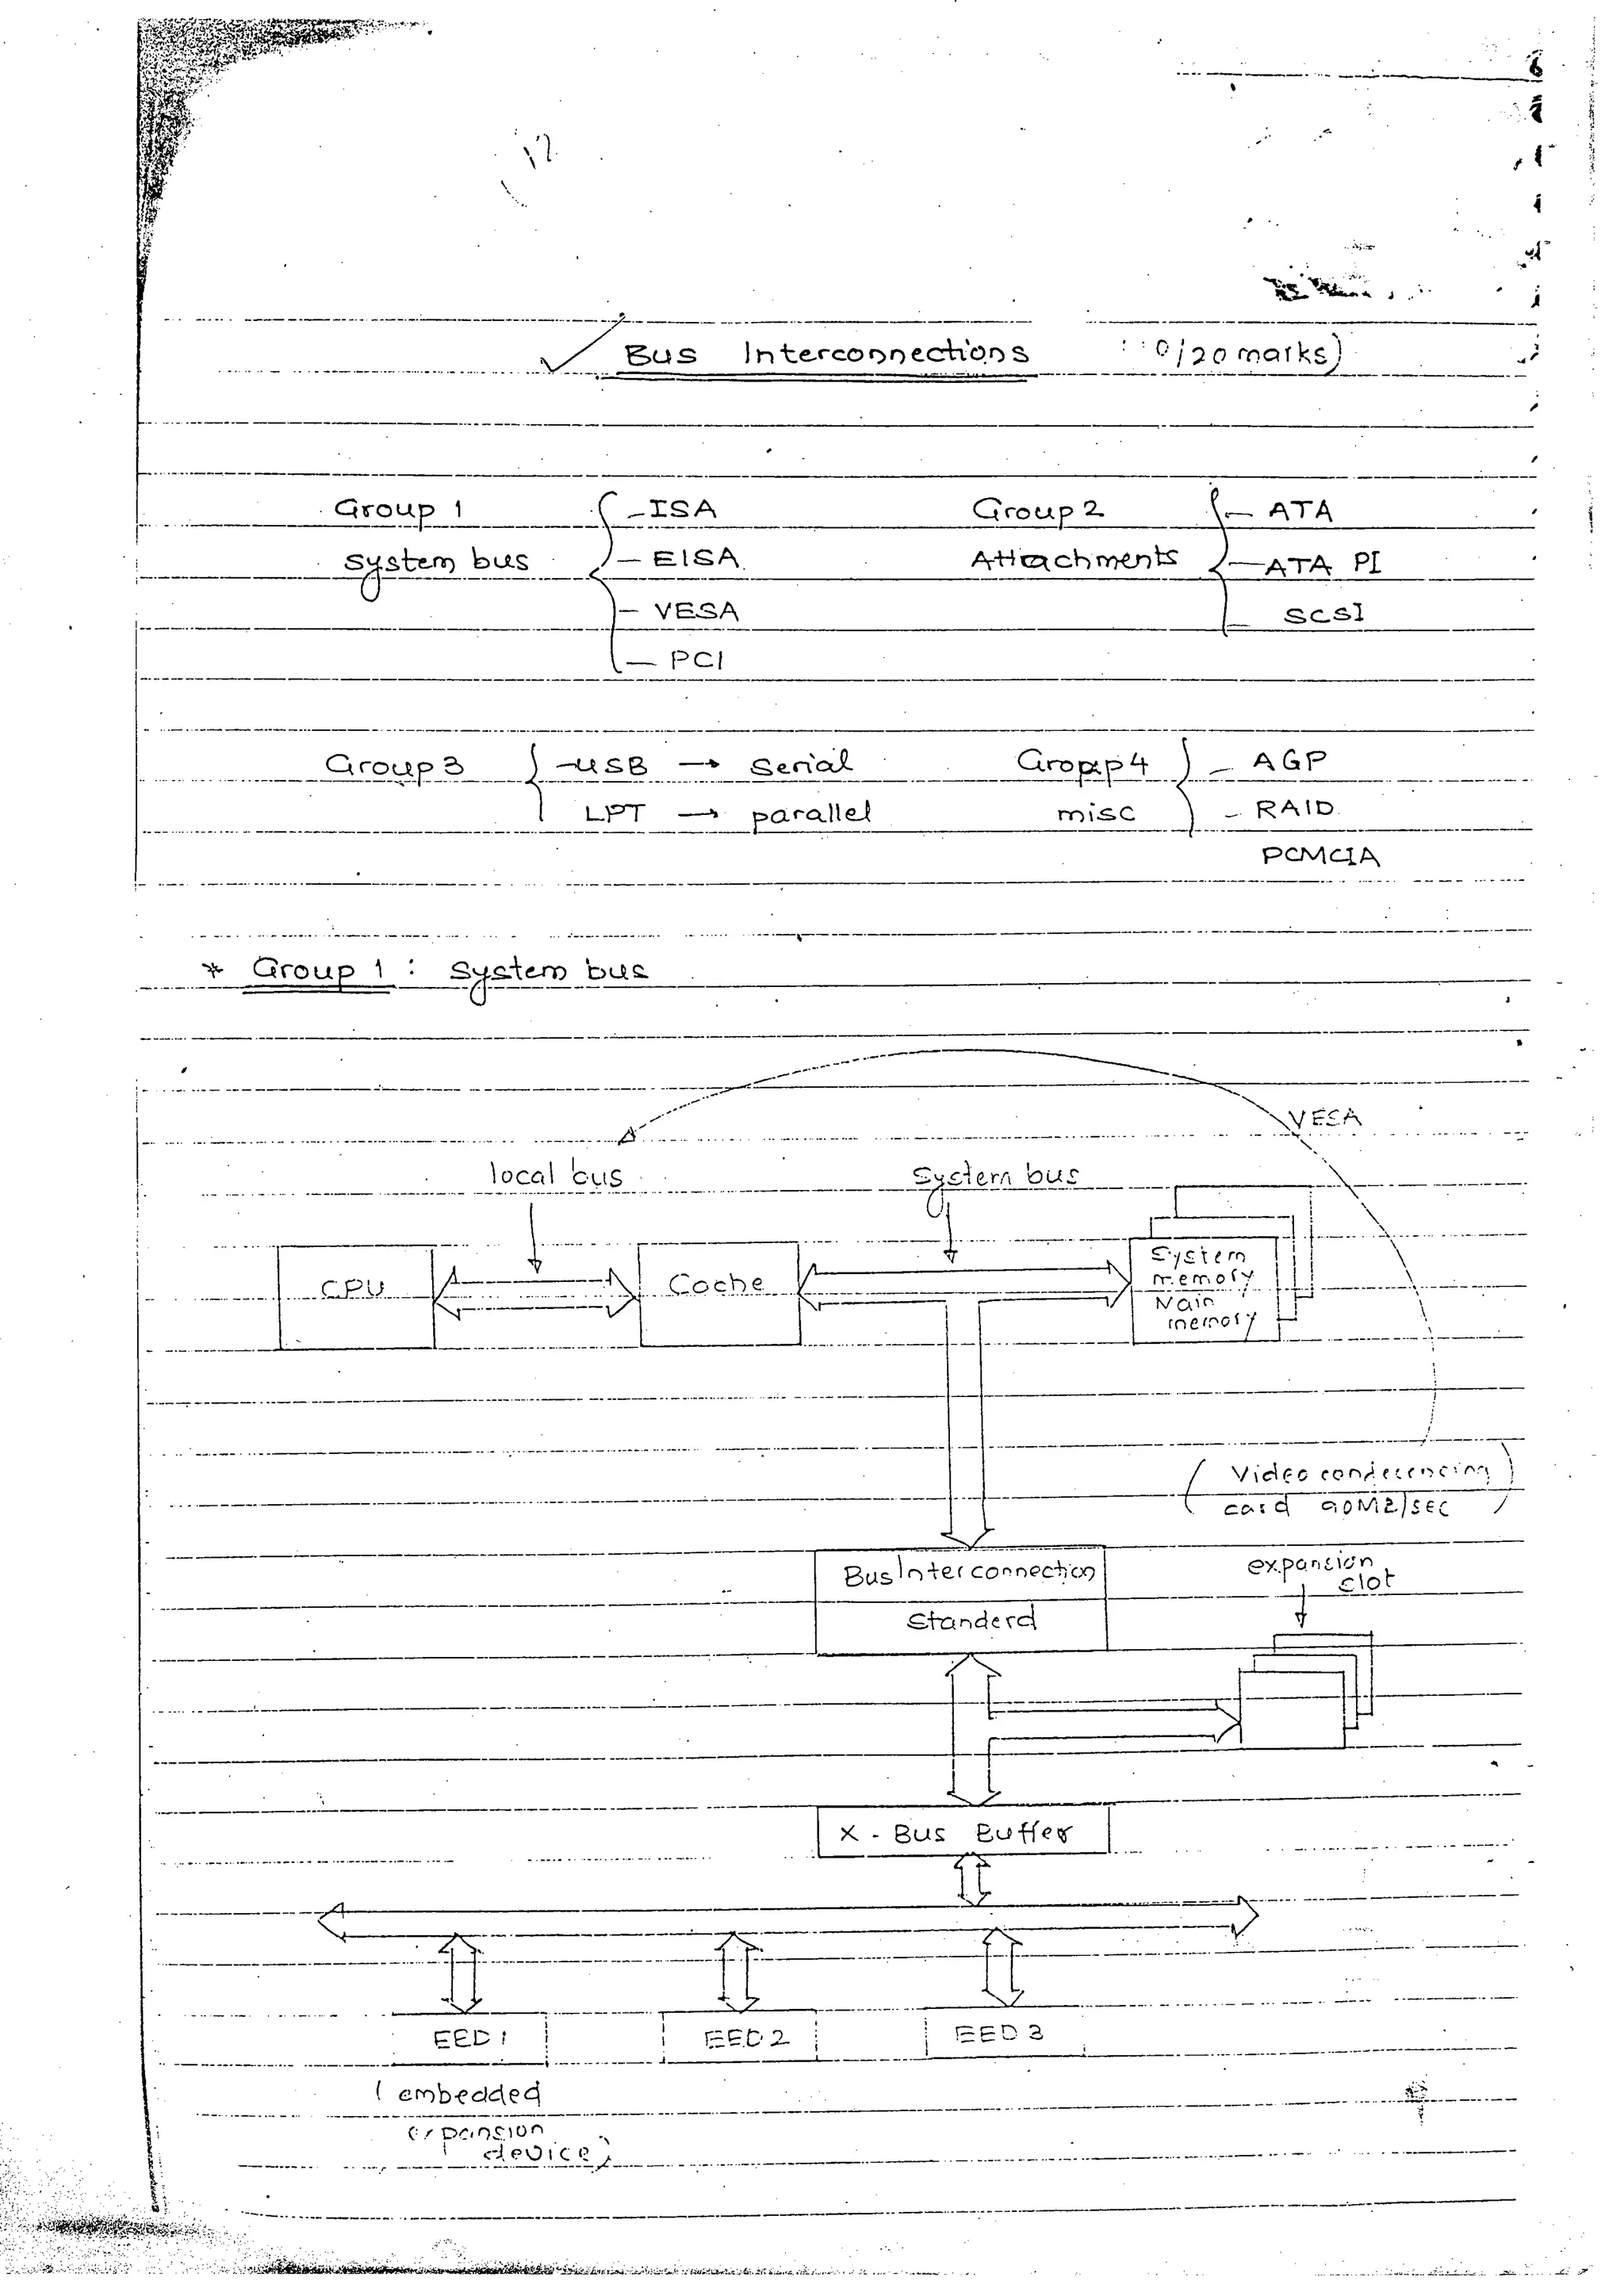 Bus Interconnections 0/20 marks)
Group 1 - ISA Group 2 - ATA
system bus - EISA Attachments - ATA PI
- VESA - SCSI
- PCI
Group 3 - USB → Serial Group 4 - AGP
LPT → parallel misc - RAID
PCMCIA
* Group 1 : system bus
VESA
local bus System bus
CPU Cache System
memory
Main
memory
(Video conferencing)
card 90M2/sec
Bus Interconnection expansion
slot
Standerd
X - Bus Buffer
EED 1 EED 2 EED 3
(embedded
expansion
device)